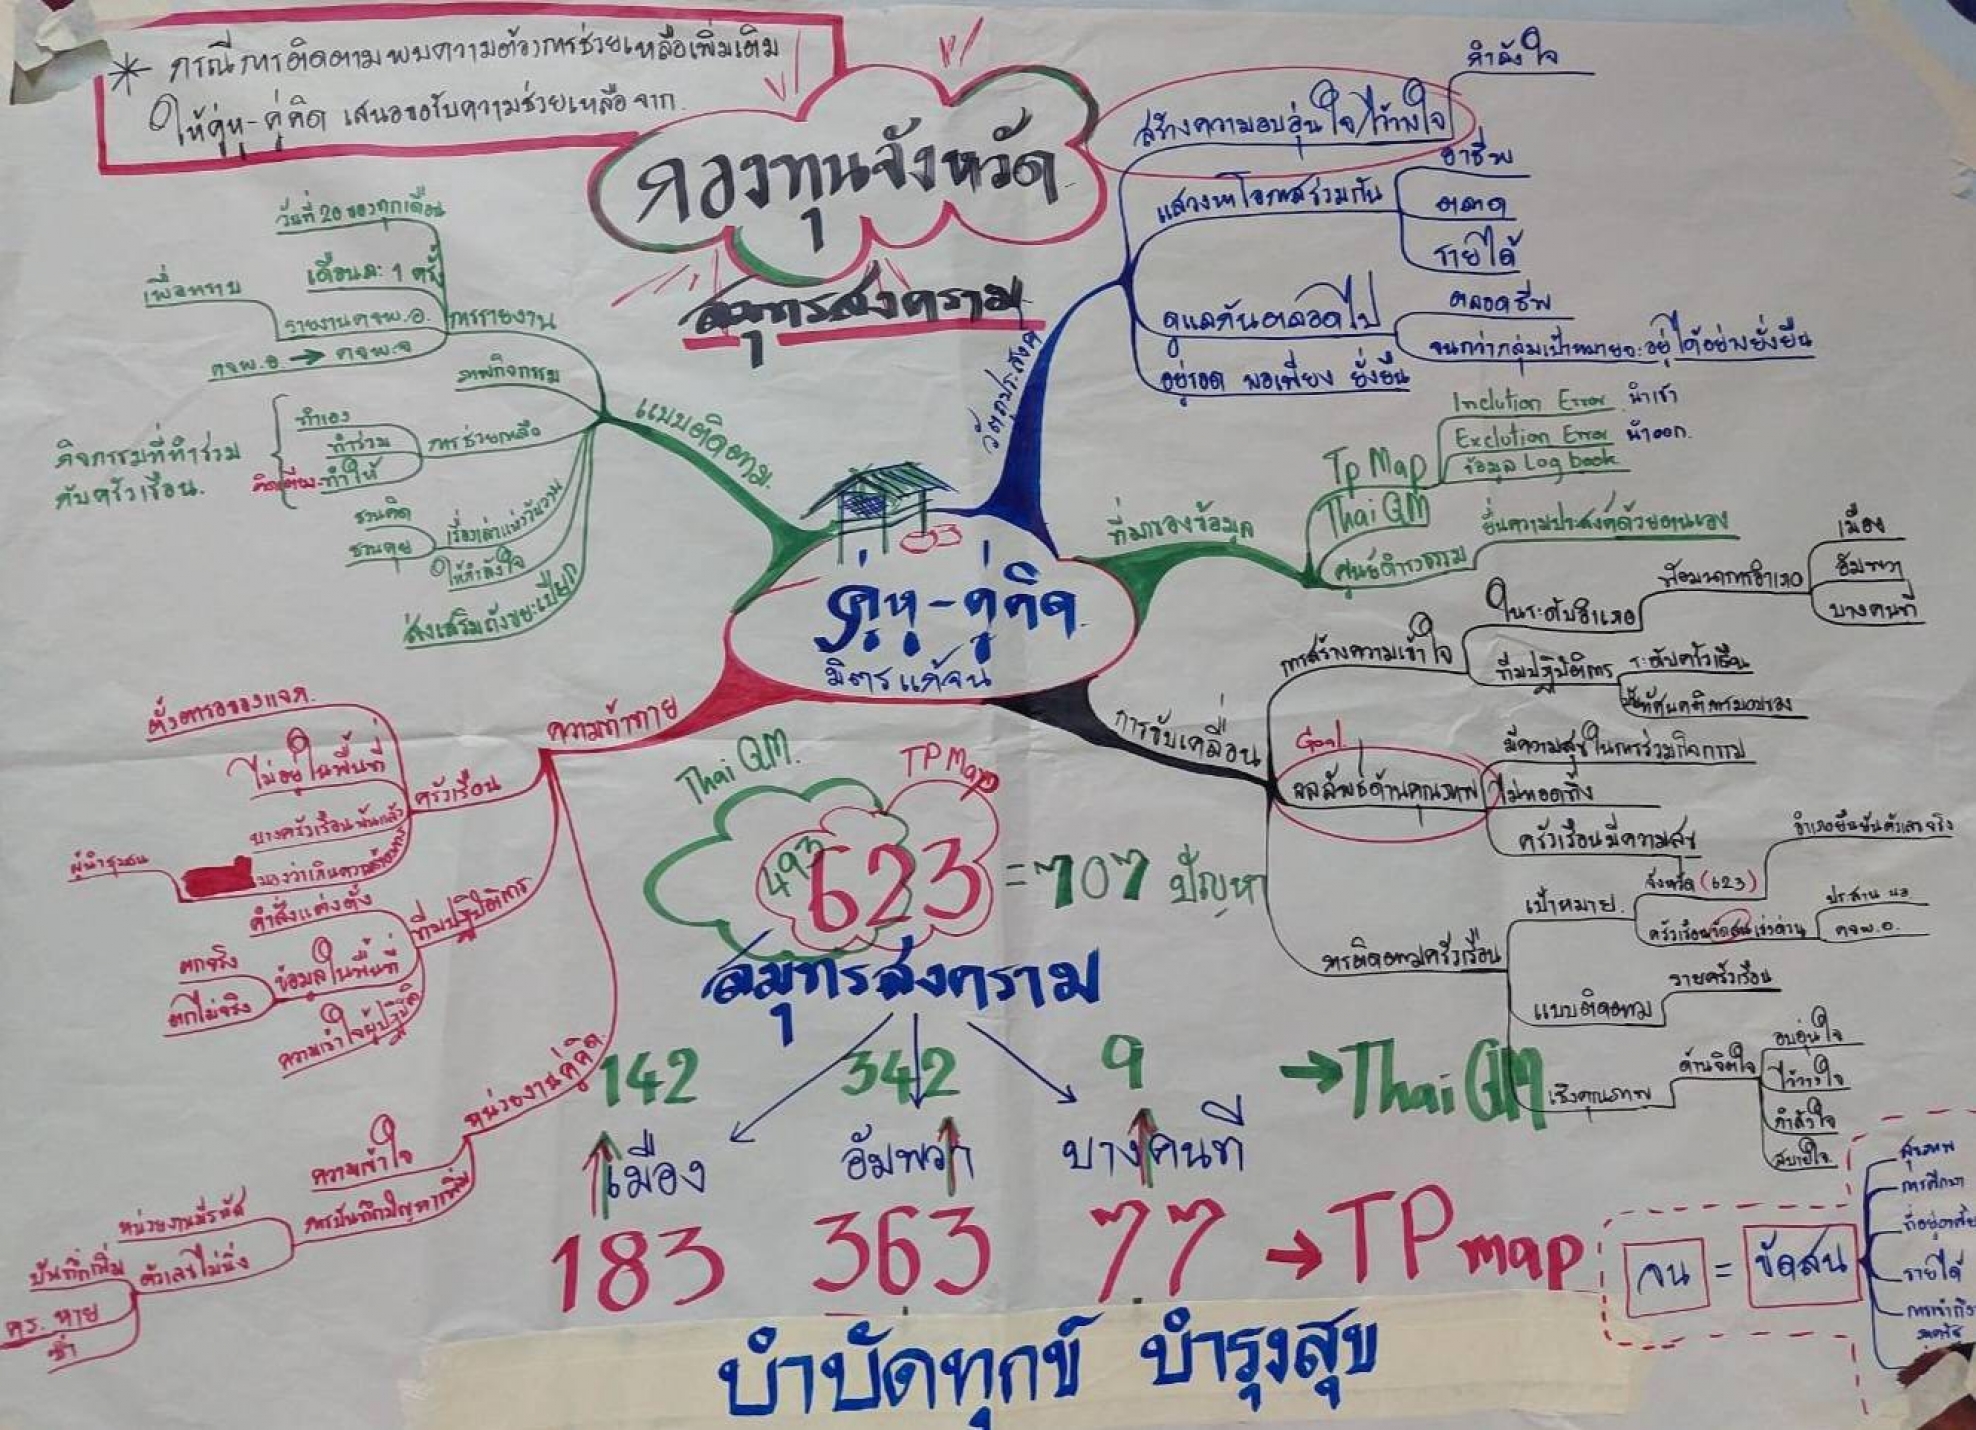 * กรณีการติดตามพบความต้องการช่วยเหลือเพิ่มเติม
ให้คู่หู-คู่คิด เสนอขอรับความช่วยเหลือจาก
กองทุนจังหวัด
สมุทรสงคราม
คู่หู-คู่คิด
มิตรแก้จน
วัตถุประสงค์
สร้างความอบอุ่นใจ/ไว้วางใจ
กำลังใจ
แสวงหาโอกาสร่วมกัน
อาชีพ
ตลาด
รายได้
ดูแลกันตลอดไป
ตลอดชีพ
จนกว่ากลุ่มเป้าหมายจะอยู่ได้อย่างยั่งยืน
อยู่รอด พอเพียง ยั่งยืน
ที่มาของข้อมูล
Tp Map
Inclution Error นำเข้า
Exclution Error นำออก.
ข้อมูล Log book
Thai QM
ศูนย์ดำรงธรรม
ยื่นความประสงค์ด้วยตนเอง
การขับเคลื่อน
การสร้างความเข้าใจ
ในระดับอำเภอ
พัฒนาการอำเภอ
เมือง
อัมพวา
บางคนที
ทีมปฏิบัติการ
ระดับครัวเรือน
Goal
ผลลัพธ์ด้านคุณภาพ
มีความสุขในการร่วมกิจกรรม
ไม่ทอดทิ้ง
ครัวเรือนมีความสุข
การติดตามครัวเรือน
เป้าหมาย
จังหวัด (623)
อำเภอยืนยันตัวเลขจริง
ครัวเรือนขัดสนเร่งด่วน
ประสาน นอ
ศจพ.อ.
แบบติดตาม
รายครัวเรือน
เชิงคุณภาพ
ด้านจิตใจ
อบอุ่นใจ
ไว้วางใจ
กำลังใจ
สบายใจ
แบบติดตาม.
การรายงาน
วันที่ 20 ของทุกเดือน
เดือนละ 1 ครั้ง
รายงาน ศจพ.อ.
เพื่อทราบ
ศจพ.อ. → ศจพ.จ
ภาพกิจกรรม
การช่วยเหลือ
ทำเอง
ทำร่วม
ทำให้
กิจกรรมที่ทำร่วม
กับครัวเรือน.
ชวนคิด
ชวนคุย
ให้กำลังใจ
ส่งเสริมถังขยะเปียก
ความท้าทาย
ครัวเรือน
ไม่อยู่ในพื้นที่
บางครัวเรือนพ้นแล้ว
ผู้นำชุมชน
ทีมปฏิบัติการ
คำสั่งแต่งตั้ง
ข้อมูลในพื้นที่
ตกจริง
ตกไม่จริง
ความเข้าใจผู้ปฏิบัติ
หน่วยงานคู่คิด
ความเข้าใจ
การบันทึกปัญหาเพิ่ม
หน่วยงานมีรหัส
ตัวเลขไม่นิ่ง
บันทึกเพิ่ม
คร. หาย
ซ้ำ
Thai QM.
TP Map
493
623
= 707 ปัญหา
สมุทรสงคราม
142 342 9 → Thai QM
เมือง อัมพวา บางคนที
183 363 77 → TP map
จน = ขัดสน
สุขภาพ
การศึกษา
ที่อยู่อาศัย
รายได้
การเข้าถึง
ภาครัฐ
บำบัดทุกข์ บำรุงสุข